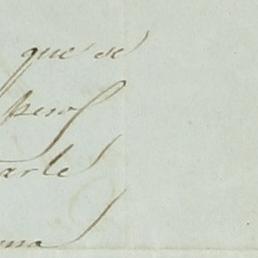 que se
pero
arle
ma